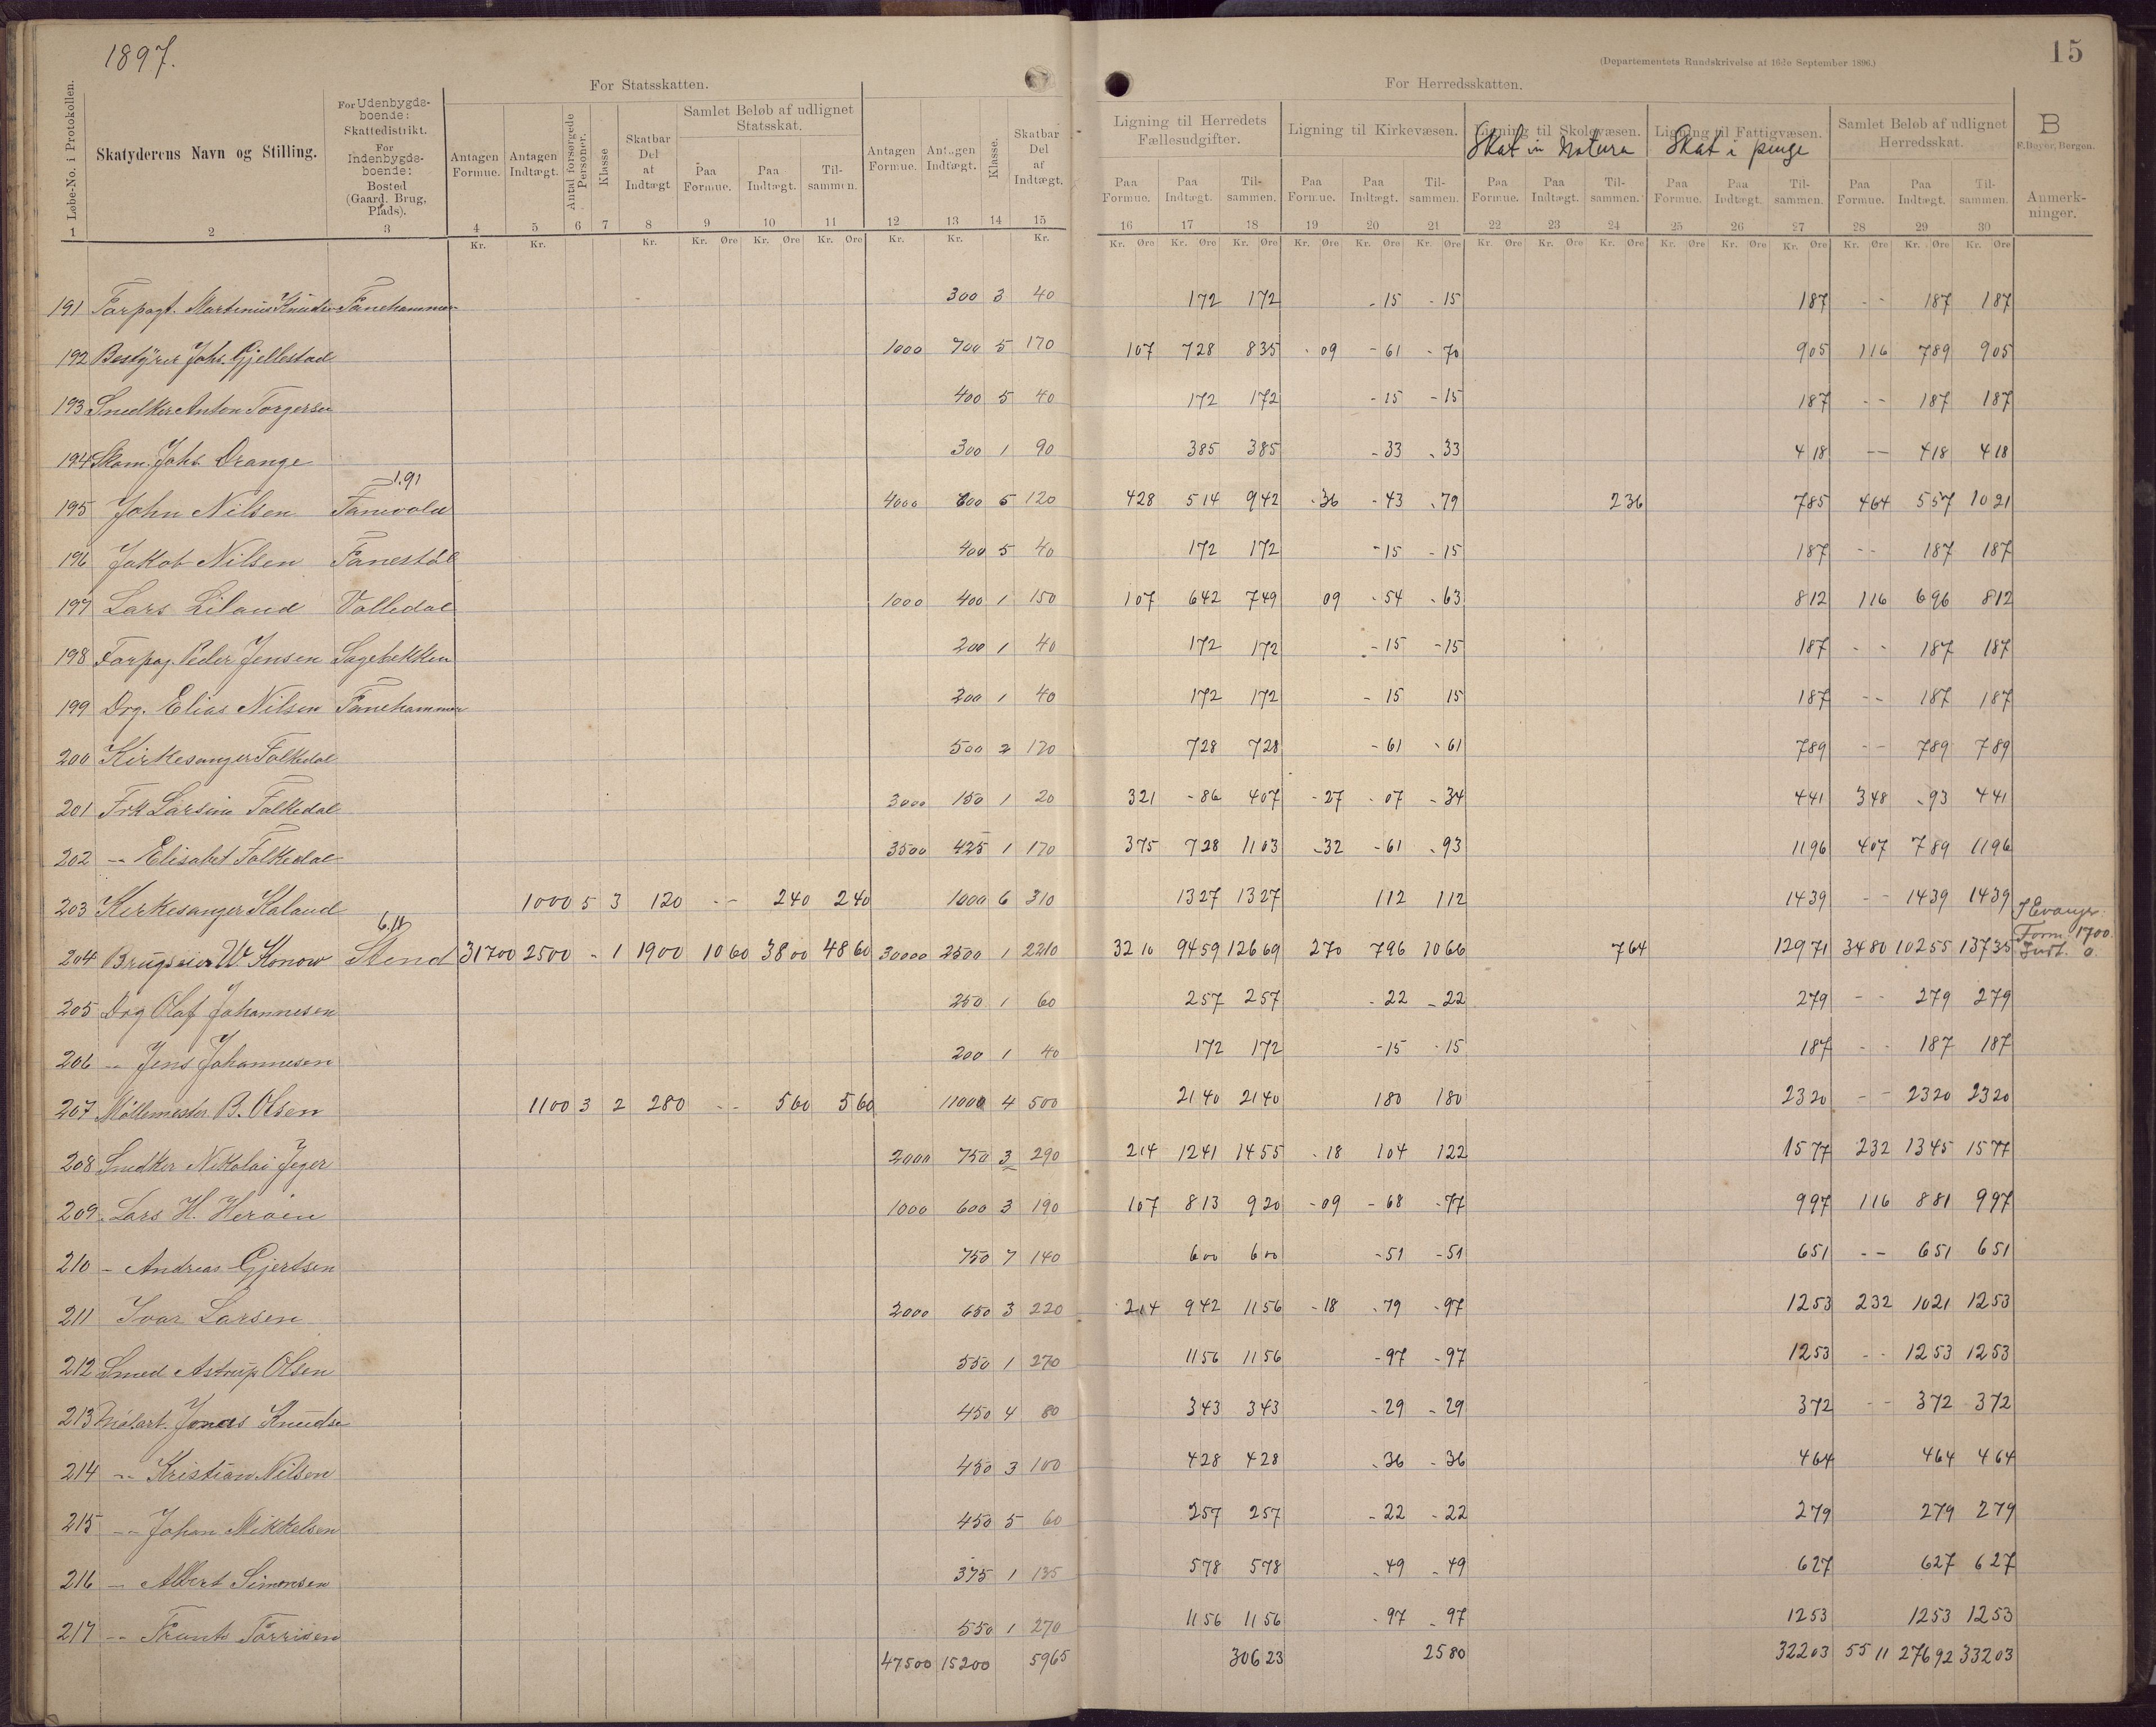 1897.
15
(Departementets Rundskrivelse af 16de September 1896.)
For Statsskatten.
For Herredsskatten.
B
F. Beyer, Bergen.
Løbe-No. i Protokollen.
Skatyderens Navn og Stilling.
For Udenbygdsboende: Skattedistrikt. For Indenbygdsboende: Bosted (Gaard, Brug, Plads).
Antagen Formue.
Antagen Indtægt.
Antal forsørgede Personer.
Klasse
Skatbar Del af Indtægt
Samlet Beløb af udlignet Statsskat.
Paa Formue. Paa Indtægt. Tilsammen.
Antagen Formue.
Antagen Indtægt.
Klasse.
Skatbar Del af Indtægt.
Ligning til Herredets Fællesudgifter.
Paa Formue. Paa Indtægt. Tilsammen.
Ligning til Kirkevæsen.
Paa Formue. Paa Indtægt. Tilsammen.
Ligning til Skolevæsen.
Skat in Natura
Paa Formue. Paa Indtægt. Tilsammen.
Ligning til Fattigvæsen.
Skat i penge
Paa Formue. Paa Indtægt. Tilsammen.
Samlet Beløb af udlignet Herredsskat.
Paa Formue. Paa Indtægt. Tilsammen.
Anmerkninger.
1 2 3 4 5 6 7 8 9 10 11 12 13 14 15 16 17 18 19 20 21 22 23 24 25 26 27 28 29 30
Kr. Kr. Kr. Kr. Øre Kr. Øre Kr. Øre Kr. Kr. Kr. Kr. Øre Kr. Øre Kr. Øre Kr. Øre Kr. Øre Kr. Øre Kr. Øre Kr. Øre Kr. Øre Kr. Øre Kr. Øre Kr. Øre Kr. Øre Kr. Øre Kr. Øre
191 Forpagt. Martinus Knudsen Fanehammer 300 3 40 172 172 - 15 - 15 187 - - 187 187
192 Bestyrer Johs. Gjellestad 1000 700 5 170 107 728 835 - 09 - 61 - 70 905 116 789 905
193 Snedker Anton Torgersen 400 5 40 172 172 - 15 - 15 187 - - 187 187
194 Skom. Johs Drange 300 1 90 385 385 - 33 - 33 418 - - 418 418
1.91
195 John Nilsen Fanevold 4000 600 5 120 428 514 942 - 36 - 43 - 79 236 785 464 557 1021
196 Jakob Nilsen Fanestøl 400 5 40 172 172 - 15 - 15 187 - - 187 187
197 Lars Liland Valledal 1000 400 1 150 107 642 749 09 - 54 - 63 812 116 696 812
198 Forpag. Peder Jensen Sagebekken 200 1 40 172 172 - 15 - 15 187 - - 187 187
199 Drg. Elias Nilsen Fanehammer 200 1 40 172 172 - 15 15 187 - - 187 187
200 Kirkesanger Folkedal 500 2 170 728 728 - 61 - 61 789 - - 789 789
201 Frk Larsine Folkedal 3000 150 1 20 321 - 86 407 - 27 - 07 - 34 441 348 - 93 441
202 - Elisabet Folkedal 3500 425 1 170 375 728 1103 - 32 - 61 - 93 1196 407 789 1196
203 Kirkesanger Kaland 1000 5 3 120 - - 240 240 1000 6 310 1327 1327 112 112 1439 - - 1439 1439
6.11
204 Brugseier W Konow Stend 31700 2500 - 1 1900 1060 3800 4860 30000 2500 1 2210 3210 9459 12669 270 796 1066 764 12971 3480 10255 13735 I Evanger: Form. 1700. Indt. 0.
205 Drg Olaf Johannesen 250 1 60 257 257 - 22 - 22 279 - - 279 279
206 - Jens Johannesen 200 1 40 172 172 - 15 - 15 187 - - 187 187
207 Møllemester B. Olsen 1100 3 2 280 - - 560 560 11000 4 500 2140 2140 180 180 2320 - - 2320 2320
208 Snedker Nikolai Jeger 2000 750 3 290 214 1241 1455 - 18 104 122 1577 232 1345 1577
209 Lars H. Herøen 1000 600 3 190 107 813 920 - 09 - 68 - 77 997 116 881 997
210 - Andreas Gjertsen 750 7 140 600 600 - 51 - 51 651 - - 651 651
211 Ivar Larsen 2000 650 3 220 214 942 1156 - 18 - 79 - 97 1253 232 1021 1253
212 Smed Astrup Olsen 550 1 270 1156 1156 - 97 - 97 1253 - - 1253 1253
213 Mølarb. Jonas Knudsen 450 4 80 343 343 - 29 - 29 372 - - 372 372
214 - Kristian Nilsen 450 3 100 428 428 - 36 - 36 464 464 464
215 - Johan Mikkelsen 450 5 60 257 257 - 22 - 22 279 279 279
216 - Albert Simonsen 375 1 135 578 578 - 49 - 49 627 627 627
217 - Frants Torrisen 550 1 270 1156 1156 - 97 - 97 1253 1253 1253
47500 15200 5965 30623 2580 32203 5511 27692 33203